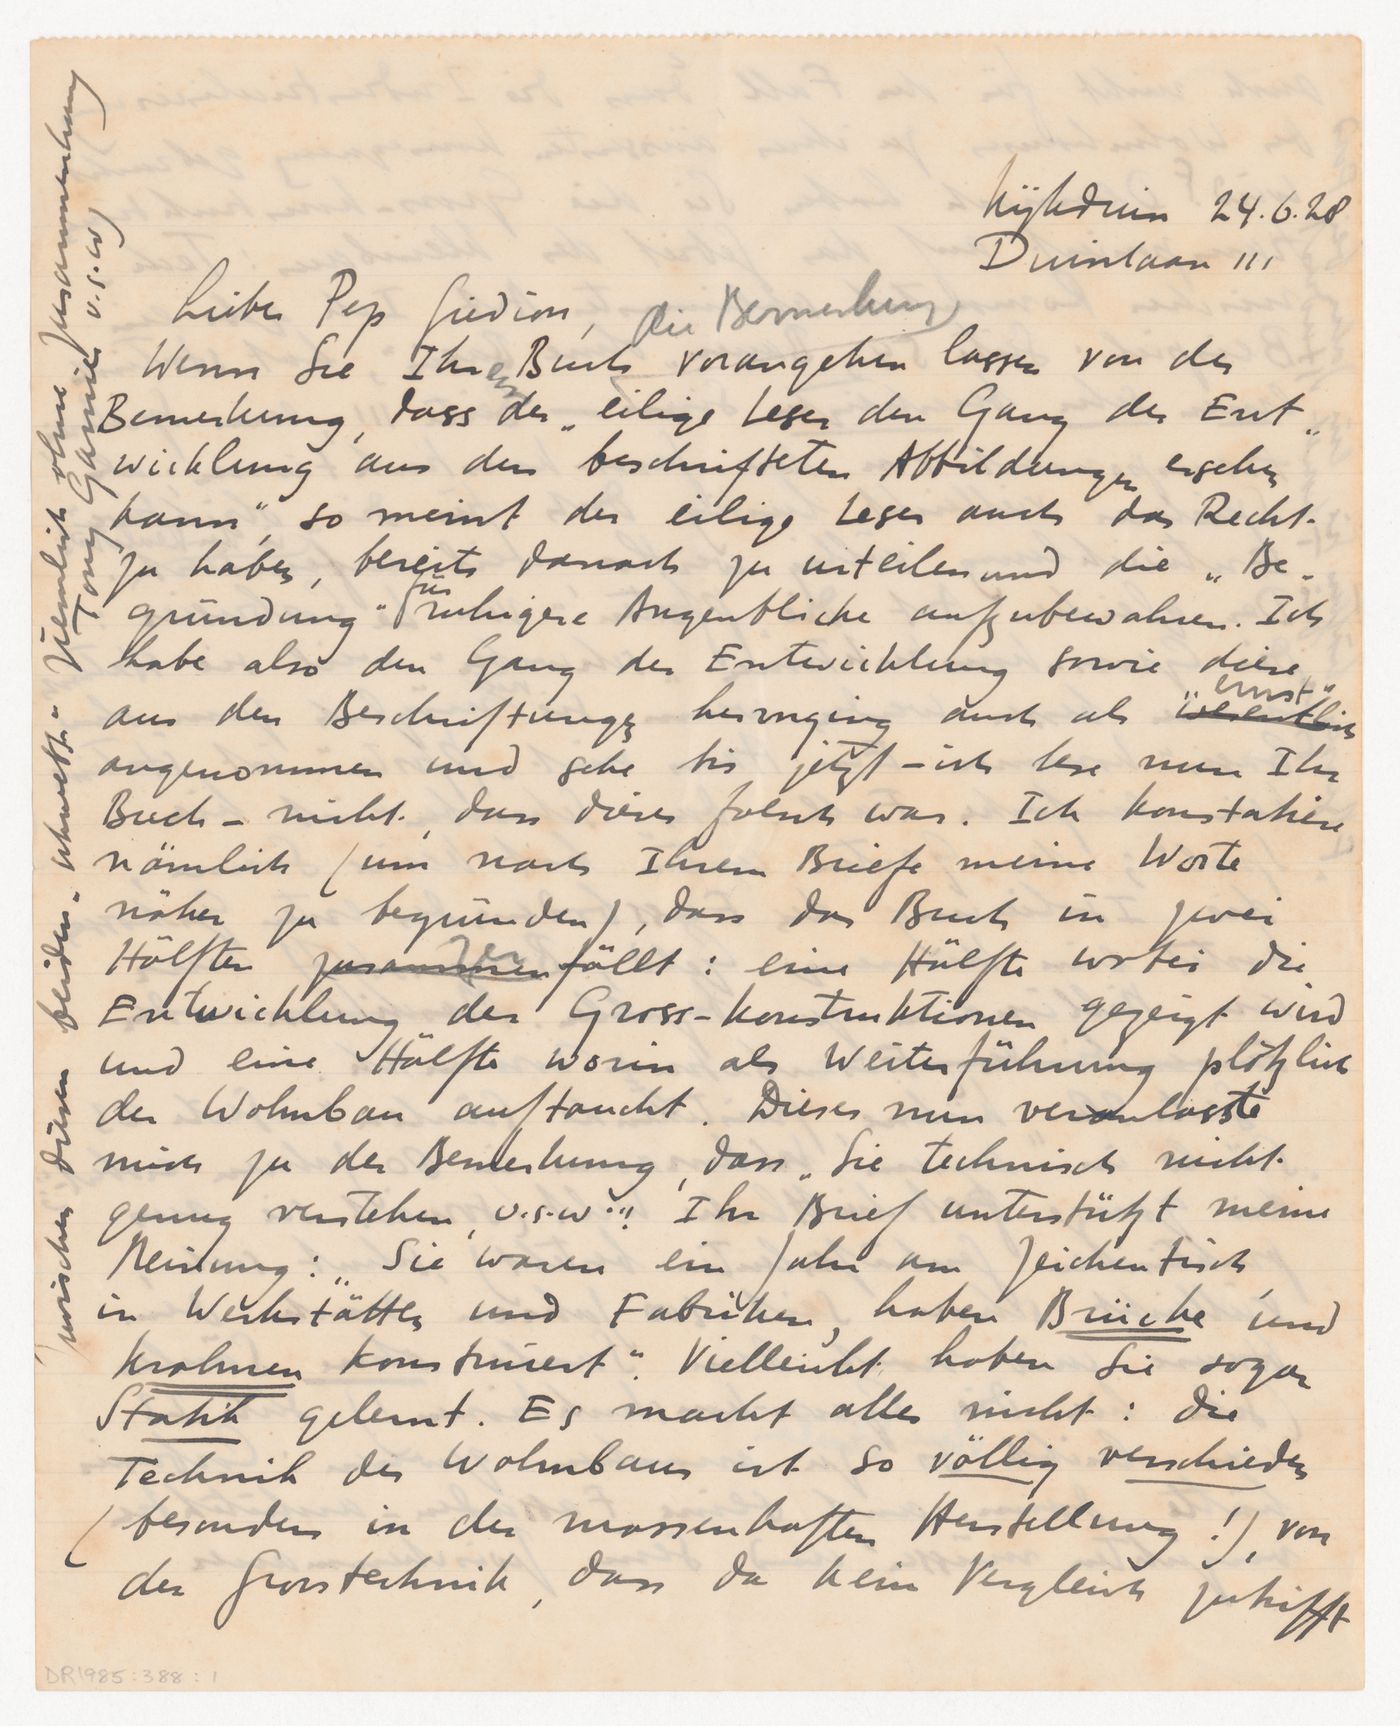 Kijkduin 24.6.28
Duinlaan 111
Lieber Pep Giedion,
die Bemerkung
Wenn Sie Ihren Buch vorangehen lassen von der
Bemerkung, dass der „eilige Leser den Gang der Ent„
wicklung aus den beschrifteten Abbildungen ersehen
kann", so meint der eilige Leser auch das Recht
zu haben, bereits danach zu urteilen und die „Be„
gründung" für ruhigere Augenblicke aufzubewahren. Ich
habe also den Gang der Entwicklung sowie diese
aus den Beschriftungen hervorging auch als „wesentlich ernst"
angenommen und sehe bis jetzt – ich lese nun Ihr
Buch – nicht, dass dieses falsch war. Ich konstatiere
nämlich (um nach Ihrem Briefe meine Worte
näher zu begründen), dass das Buch in zwei
Hälften zusammen fällt: eine Hälfte wobei die
Entwicklung der Gross-konstruktionen gezeigt wird
und eine Hälfte worin als Weiterführung plötzlich
der Wohnbau auftaucht. Dieses nun veranlasste
mich zu der Bemerkung, dass „Sie technisch nicht
genug verstehen, u.s.w."! Ihr Brief unterstützt meine
Meinung: „Sie waren ein Jahr am Zeichentisch,
in Werkstätten und Fabriken, haben Brücke und
Krahnen konstruiert". Vielleicht haben Sie sogar
Statik gelernt. Es macht alles nicht: die
Technik des Wohnbaus ist so völlig verschieden
(besonders in der massenhaften Herstellung!), von
der Grosstechnik, dass da kein Vergleich zutrifft
(zwischen diesen beiden „ ziemlich ohne Zusammenhang
Tony Garnier u.s.w)
DR1985:388:1